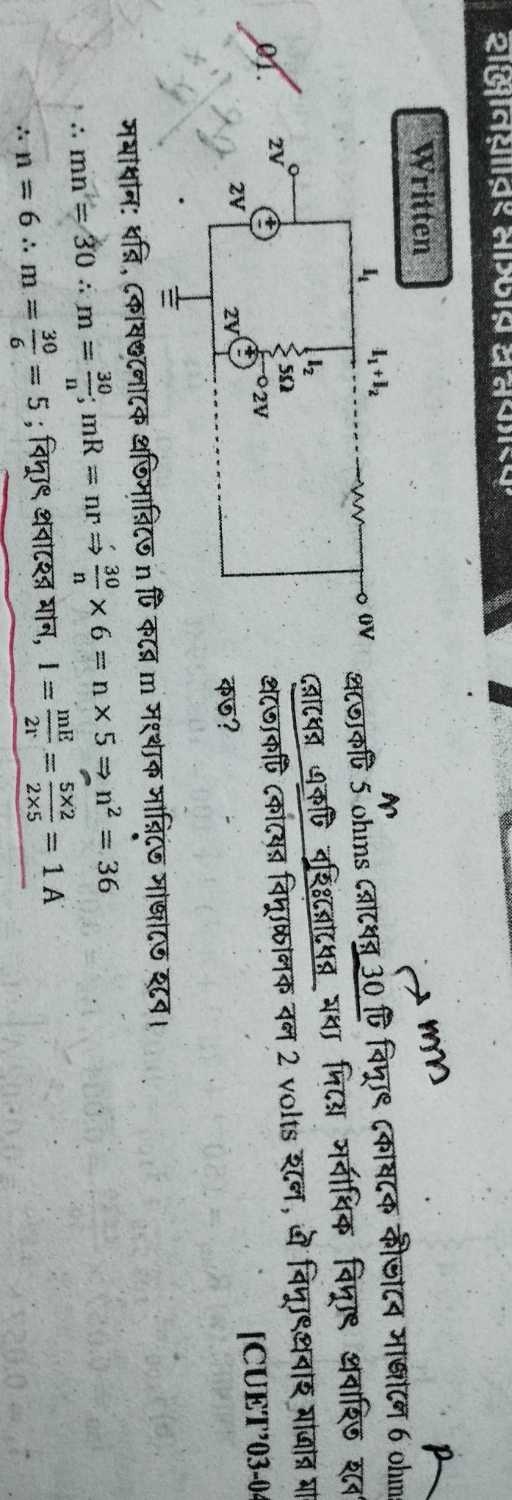 ইঞ্জিনিয়ারিং
Written
01.
প্রত্যেকটি 5 ohms রোধের 30 টি বিদ্যুৎ কোষকে কীভাবে সাজালে 6 ohm
রোধের একটি বহিঃরোধের মধ্য দিয়ে সর্বাধিক বিদ্যুৎ প্রবাহিত হবে
প্রত্যেকটি কোষের বিদ্যুচ্চালক বল 2 volts হলে, ঐ বিদ্যুৎপ্রবাহ মাত্রার মা
কত?
[CUET'03-04
r
mn
P
I₁
I₁ + I₂
0V
I₂
5Ω
2V
2V
2V
2V
সমাধান: ধরি, কোষগুলোকে প্রতিসারিতে n টি করে m সংখ্যক সারিতে সাজাতে হবে।
∴ mn = 30 ∴ m = 30/n; mR = nr ⇒ 30/n × 6 = n × 5 ⇒ n² = 36
∴ n = 6 ∴ m = 30/6 = 5 ; বিদ্যুৎ প্রবাহের মান, I = mE/2r = 5×2/2×5 = 1 A